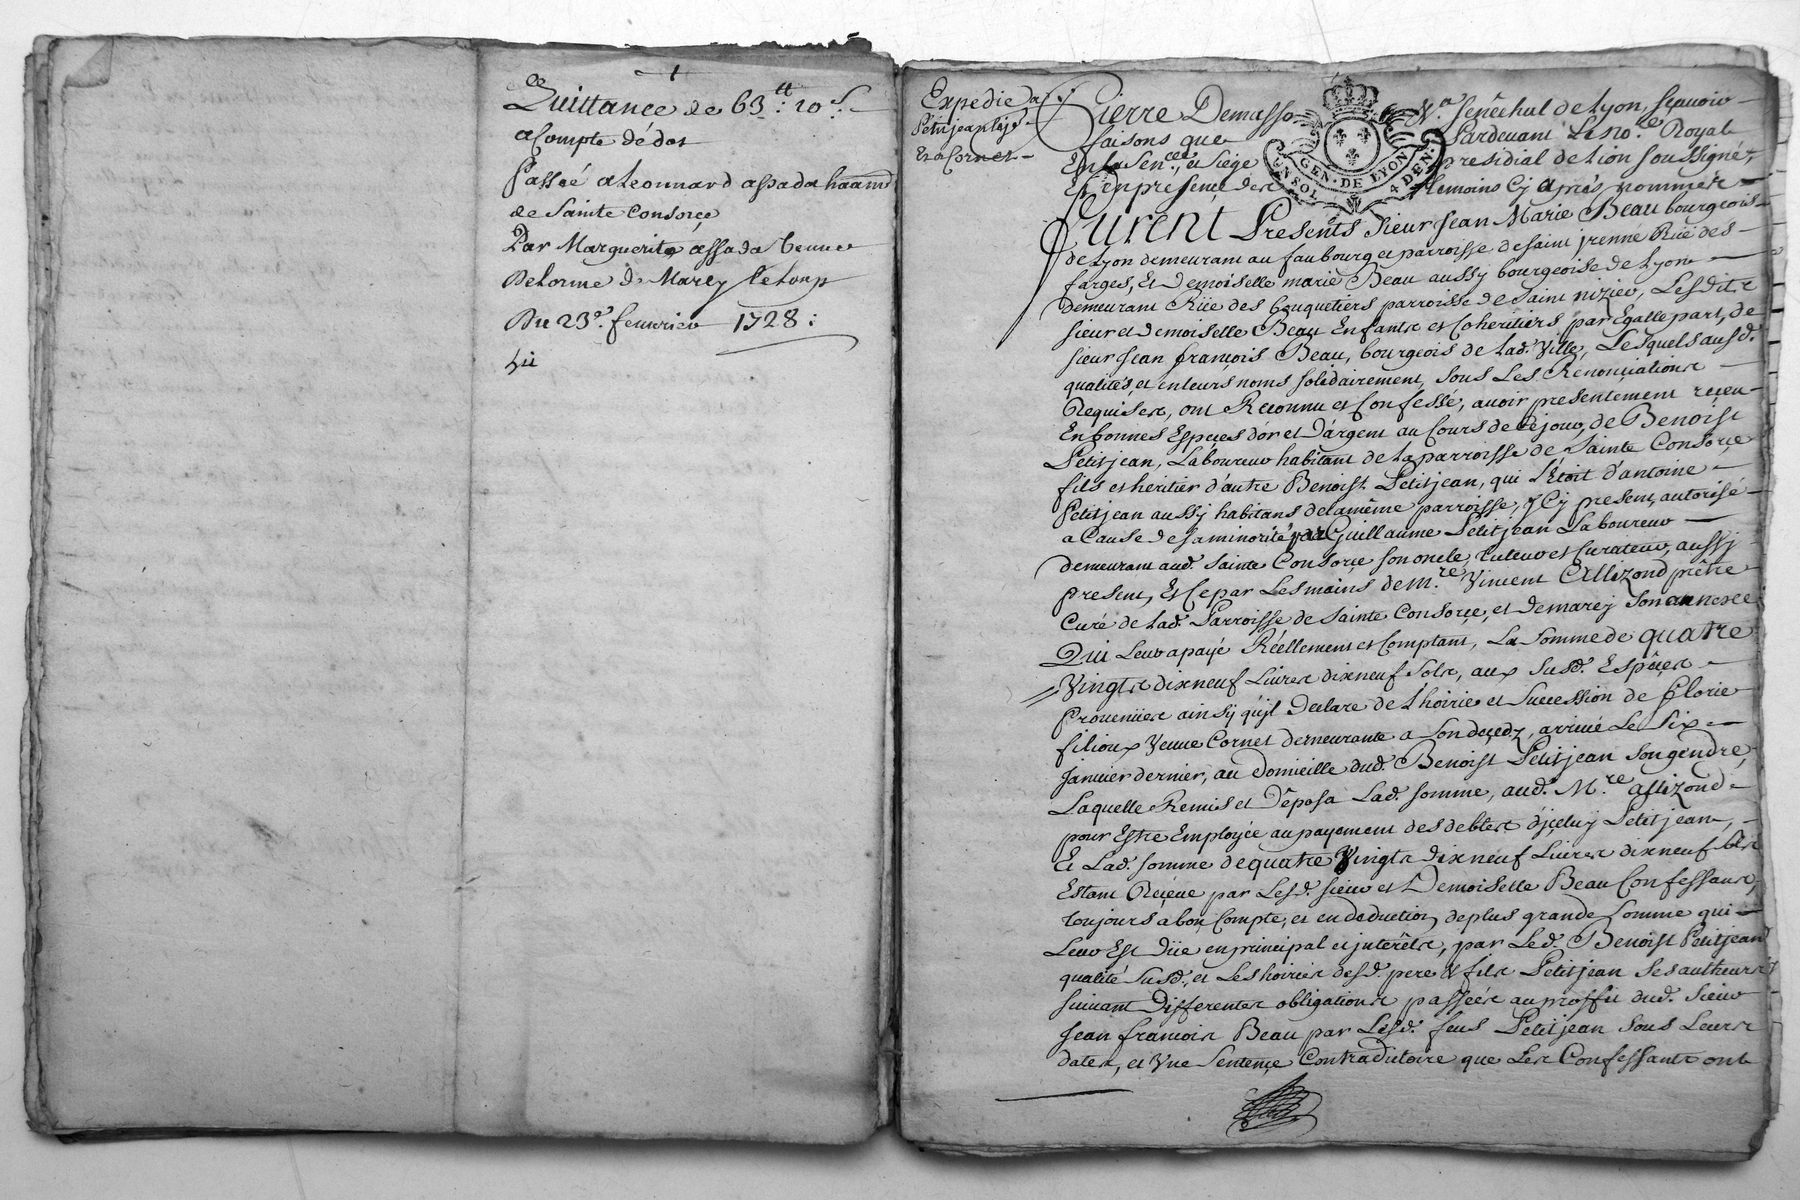 Quittance de 63.tt 10.s
aCompte dédot
Passeé aLeonnard assada
de Sainte Consorçe
Par Marguerite assada veuve
Delorme de Marcy
Du 23.e feuvrier 1728:
Expedié a
Petitjean le
Et a Cornet
Pierre Demasso
N.a Senêchal de Lyon, sçauoir
faisons que
Pardeuant Le no.re Royal
En la Sen.cée et Siége
presidial de Lion soussigné,
Et En presençe des
temoins Cy aprés nommés
GEN. DE LYON
4 DEN.
furent Presents Sieur Jean Marie Beau bourgeois
de Lyon demeurant au faubourg et parroisse de Saint jrenné Rüe des
farges, Et Demoiselle marie Beau aussy bourgeoise de Lyon
demeurant Rüe des bouquetiers parroisse de Saint nizier, Lesdits
sieur et demoiselle Beau Enfants et Coheritiers par Egalle part, de
sieur Jean françois Beau, bourgeois de lad. Ville, Lesquels ausd.
qualités, et en leurs noms solidairement, sous Les Renonciations
Requises, ont Reconnu et Confessé, auoir presentement reçeu
En bonnes Espeçes d'or et D'argent au Cours de ce jour, de Benoist
Petitjean, Laboureur habitant de la parroisse de Sainte Consorçe
fils et heritier d'autre Benoist Petitjean, qui L'étoit d'antoine
Petitjean aussy habitans de la même parroisse, Cy present, autorisé
a Cause de sa minorité par Guillaume Petitjean Laboureur
demeurant aud. Sainte Consorçe son oncle, tuteur et Curateur, aussy
present, Et Ce par Les mains de m.re Vincent Allizond prêtre
Curé de lad. Parroisse de Sainte Consorçe, et de marcy son annexe
Qui Leur a payé Réellement et Comptant, La somme de quatre
Vingts dixneuf Liures dixneuf sols, aux susd. Espéçes
prouenües ainsy qu'jl Declare de L'hoirie et succession de Clorie
filioux Veuve Cornet demeurante a son deçedz, arriué Le six
Januier dernier, au domicille dud. Benoist Petitjean son gendre,
Laquelle Remis et Dêposa Lad. somme, aud. M.re allizond
pour Estre Employée au payement des debtes d'jçeluy Petitjean,
Et Lad. somme de quatre Vingts dixneuf Liures dixneuf sols
Estant Reçeue par Lesd. sieur et Demoiselle Beau Confessans,
toujours a bon Compte, et en deduction de plus grande somme qui
Leur Est Düe en principal et jnterêts, par Led. Benoist Petitjean
qualité susd., et Les hoiries desd. pere & fils Petitjean ses autheurs
suiuant Differentes obligations passées au proffit dud. sieur
Jean françois Beau par Lesd. feus Petitjean sous Leurs
dates, et Vne Sentençe Contradictoire que Les Confessants ont